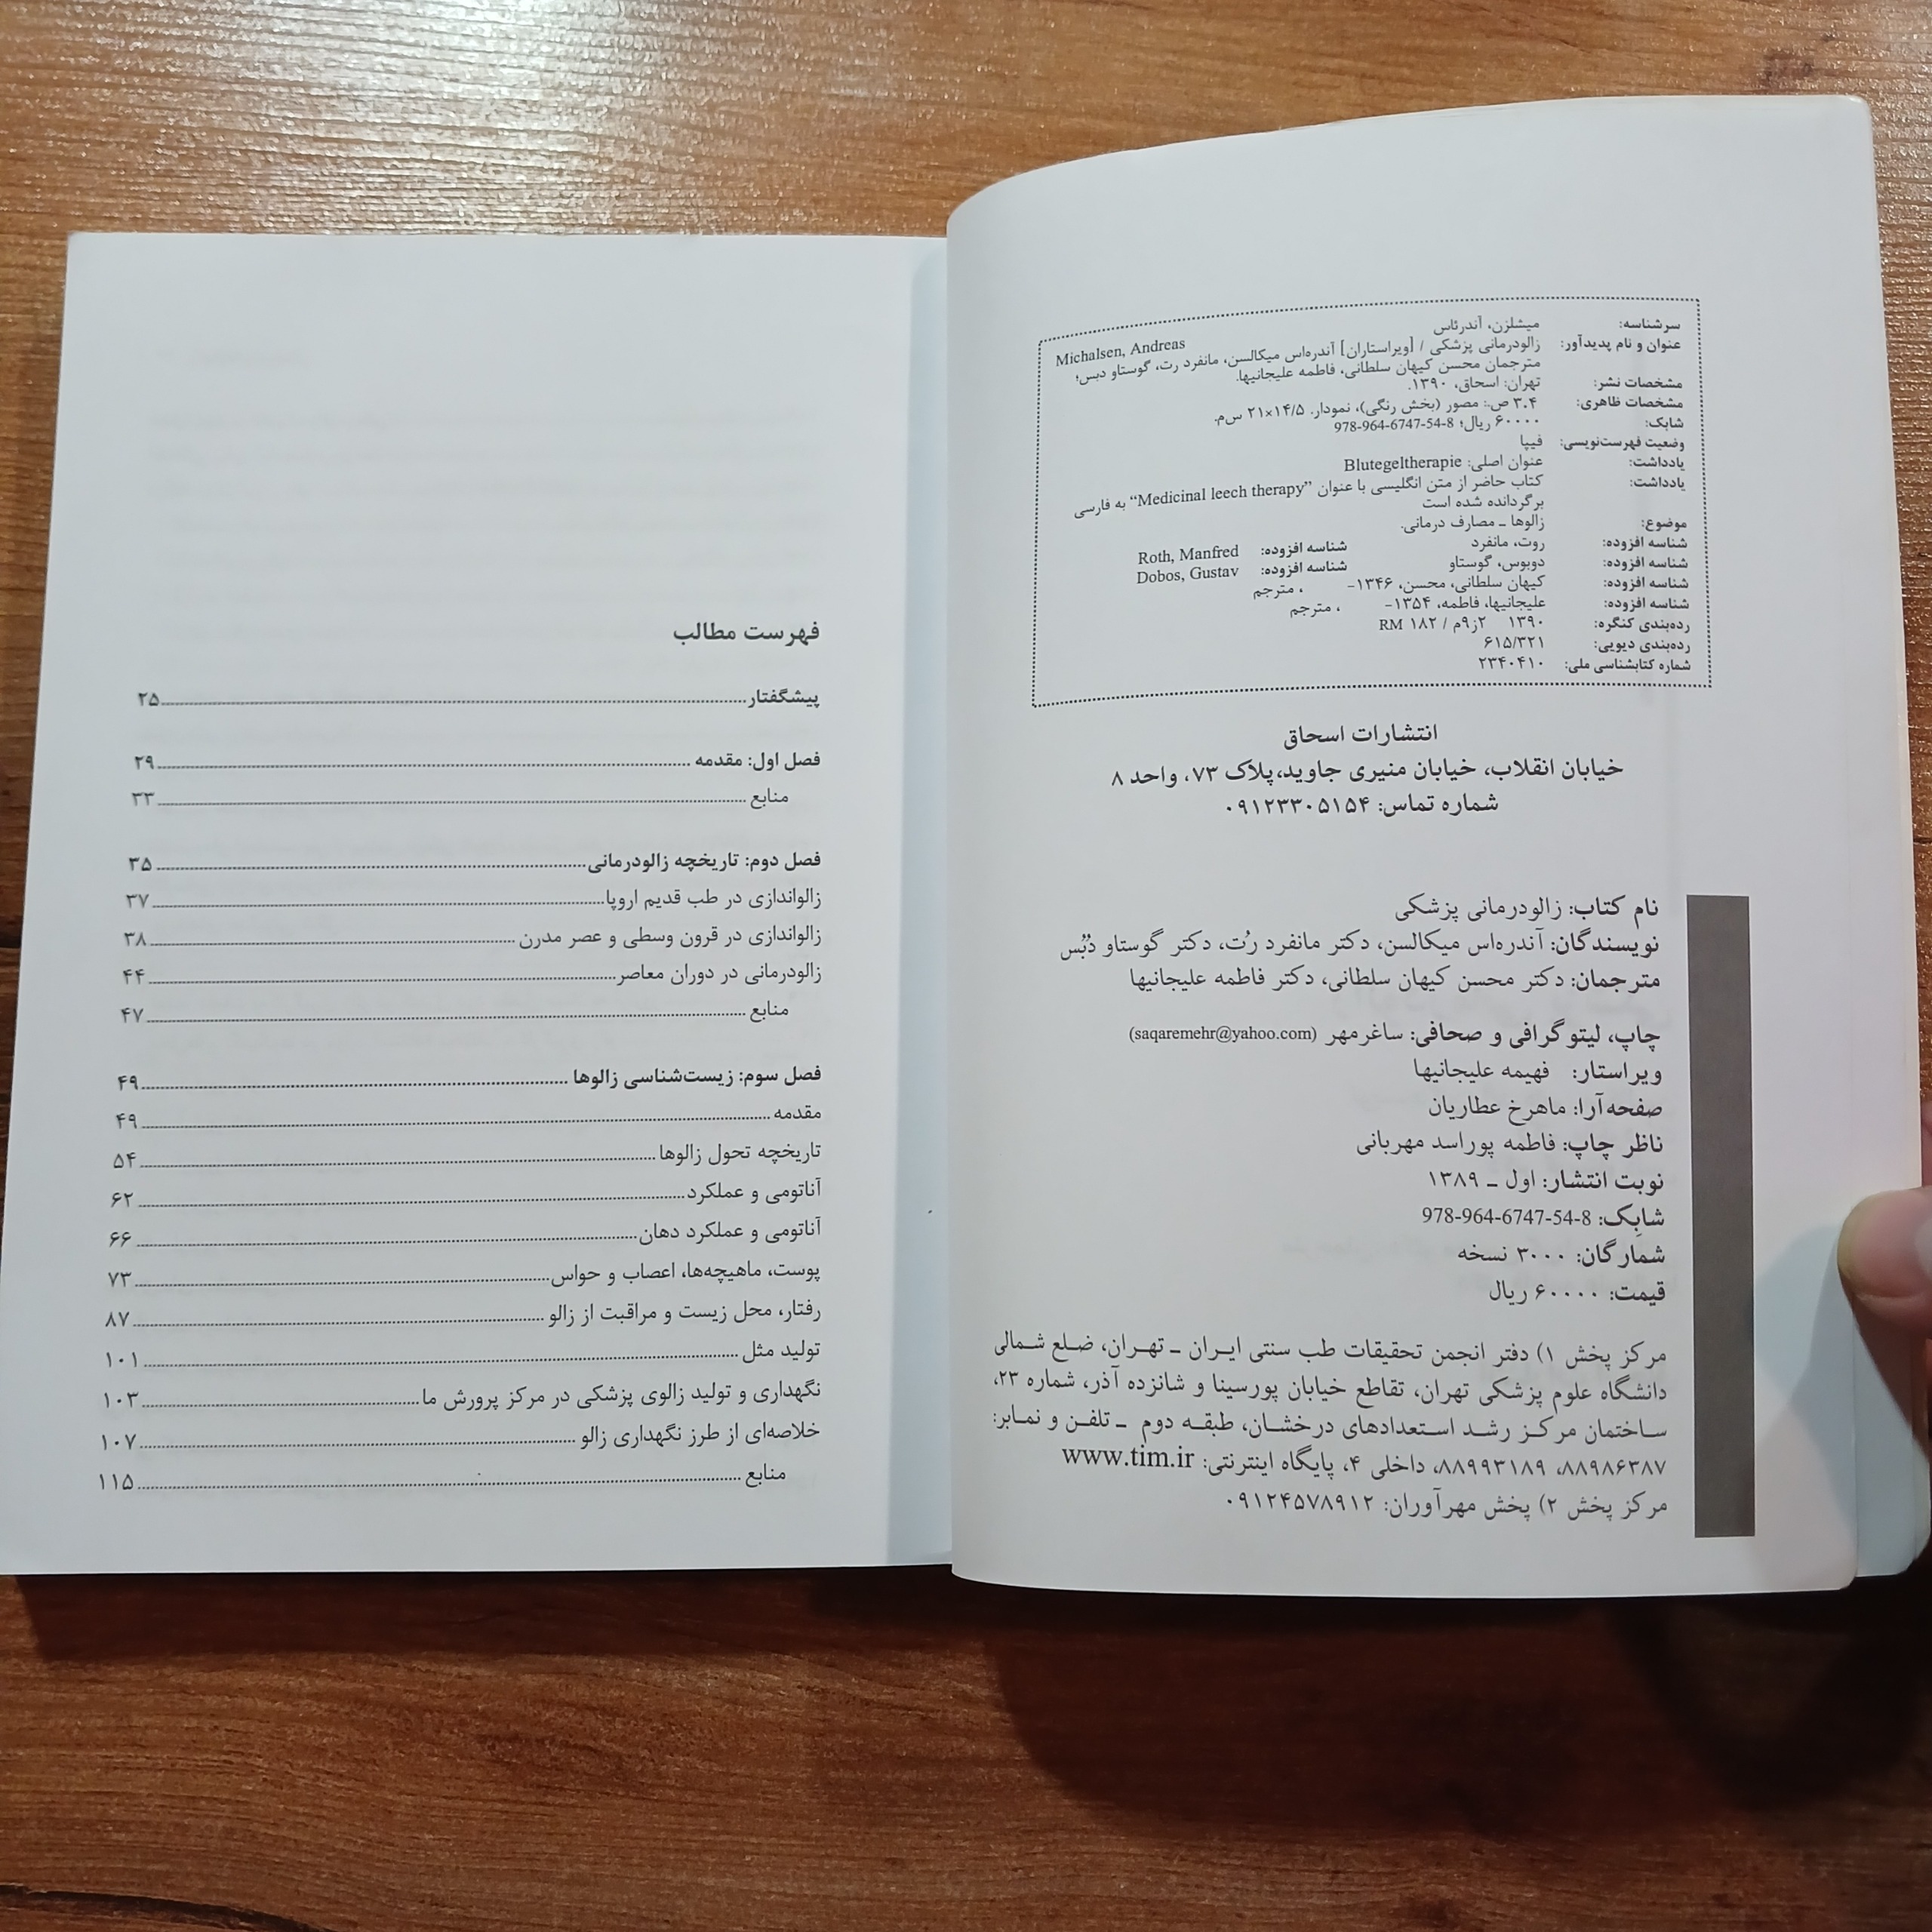 سرشناسه: میشلزن، آندرئاس
Michalsen, Andreas
عنوان و نام پدیدآور: زالودرمانی پزشکی / [ویراستاران] آندره‌اس میکالسن، مانفرد رت، گوستاو دبس؛
مترجمان محسن کیهان سلطانی، فاطمه علیجانیها.
مشخصات نشر: تهران: اسحاق، ۱۳۹۰.
مشخصات ظاهری: ۳.۴ ص.: مصور (بخش رنگی)، نمودار. ۱۴/۵×۲۱ س‌م.
شابک: ۶۰۰۰۰ ریال؛ 978-964-6747-54-8
وضعیت فهرست‌نویسی: فیپا
یادداشت: عنوان اصلی: Blutegeltherapie
یادداشت: کتاب حاضر از متن انگلیسی با عنوان “Medicinal leech therapy” به فارسی
برگردانده شده است
موضوع: زالوها ـ مصارف درمانی.
شناسه افزوده: روت، مانفرد شناسه افزوده: Roth, Manfred
شناسه افزوده: دوبوس، گوستاو شناسه افزوده: Dobos, Gustav
شناسه افزوده: کیهان سلطانی، محسن، ۱۳۴۶- ، مترجم
شناسه افزوده: علیجانیها، فاطمه، ۱۳۵۴- ، مترجم
رده‌بندی کنگره: ۱۳۹۰ ۲ز۹م / RM ۱۸۲
رده‌بندی دیویی: ۶۱۵/۳۲۱
شماره کتابشناسی ملی: ۲۳۴۰۴۱۰
انتشارات اسحاق
خیابان انقلاب، خیابان منیری جاوید،پلاک ۷۳، واحد ۸
شماره تماس: ۰۹۱۲۳۳۰۵۱۵۴
نام کتاب: زالودرمانی پزشکی
نویسندگان: آندره‌اس میکالسن، دکتر مانفرد رُت، دکتر گوستاو دُبُس
مترجمان: دکتر محسن کیهان سلطانی، دکتر فاطمه علیجانیها
چاپ، لیتوگرافی و صحافی: ساغرمهر (saqaremehr@yahoo.com)
ویراستار: فهیمه علیجانیها
صفحه‌آرا: ماهرخ عطاریان
ناظر چاپ: فاطمه پوراسد مهربانی
نوبت انتشار: اول ـ ۱۳۸۹
شابِک: 978-964-6747-54-8
شمارگان: ۳۰۰۰ نسخه
قیمت: ۶۰۰۰۰ ریال
مرکز پخش ۱) دفتر انجمن تحقیقات طب سنتی ایران ـ تهران، ضلع شمالی
دانشگاه علوم پزشکی تهران، تقاطع خیابان پورسینا و شانزده آذر، شماره ۲۳،
ساختمان مرکز رشد استعدادهای درخشان، طبقه دوم ـ تلفن و نمابر:
۸۸۹۸۶۳۸۷، ۸۸۹۹۳۱۸۹، داخلی ۴، پایگاه اینترنتی: www.tim.ir
مرکز پخش ۲) پخش مهرآوران: ۰۹۱۲۴۵۷۸۹۱۲
فهرست مطالب
پیشگفتار ۲۵
فصل اول: مقدمه ۲۹
منابع ۳۳
فصل دوم: تاریخچه زالودرمانی ۳۵
زالواندازی در طب قدیم اروپا ۳۷
زالواندازی در قرون وسطی و عصر مدرن ۳۸
زالودرمانی در دوران معاصر ۴۴
منابع ۴۷
فصل سوم: زیست‌شناسی زالوها ۴۹
مقدمه ۴۹
تاریخچه تحول زالوها ۵۴
آناتومی و عملکرد ۶۲
آناتومی و عملکرد دهان ۶۶
پوست، ماهیچه‌ها، اعصاب و حواس ۷۳
رفتار، محل زیست و مراقبت از زالو ۸۷
تولید مثل ۱۰۱
نگهداری و تولید زالوی پزشکی در مرکز پرورش ما ۱۰۳
خلاصه‌ای از طرز نگهداری زالو ۱۰۷
منابع ۱۱۵